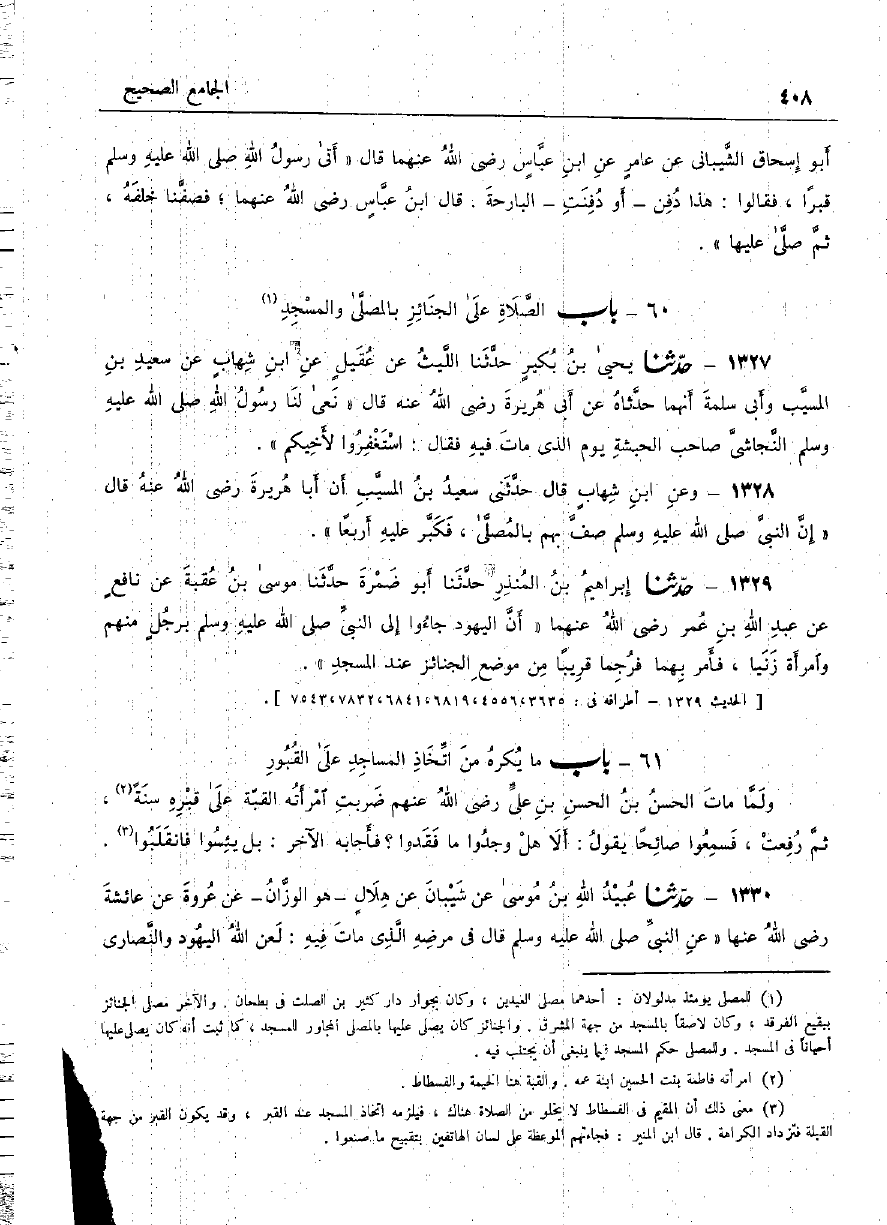 ٤٠٨ الجامع الصحيح
أبو إسحاق الشَّيبانى عن عامرٍ عنِ ابنِ عبَّاسٍ رضى اللهُ عنهما قال « أتىٰ رسولُ اللهِ صلى الله عليهِ وسلم
قبرًا ، فقالوا : هذا دُفِن – أو دُفِنَتِ – البارحةَ . قال ابنُ عبَّاس رضى اللهُ عنهما ؛ فصفَّنا خلفَهُ ،
ثمَّ صلَّىٰ عليها » .
٦٠ – باب الصَّلَاةِ علَىٰ الجنَائِزِ بالمصلَّىٰ والمسْجِدِ(١)
١٣٢٧ – حدّثنا يحيىٰ بنُ بُكيرٍ حدَّثَنا اللَّيثُ عن عُقَيلٍ عنِ ابنِ شِهابٍ عن سعيدِ بنِ
المسيَّب وأبى سلمةَ أنهما حدَّثاهُ عن أبى هُريرةَ رضى اللهُ عنه قال « نَعىٰ لَنا رسولُ اللهِ صلى الله عليهِ
وسلم النَّجاشىَّ صاحب الحبشةِ يوم الذى ماتَ فيهِ فقال : اسْتَغْفِرُوا لأَخِيكم » .
١٣٢٨ – وعنِ ابنِ شِهابٍ قال حدَّثَنى سعيدُ بنُ المسيَّبِ أن أبا هُريرةَ رضى اللهُ عنهُ قال
« إنَّ النبىَّ صلى الله عليهِ وسلم صفَّ بهم بالمُصلَّىٰ ، فَكَبَّر عليهِ أربعًا » .
١٣٢٩ – حدّثنا إبراهيمُ بنُ المُنذِرِ حدَّثَنا أبو ضَمْرةَ حدَّثَنا موسىٰ بنُ عُقبةَ عن نافعٍ
عن عبدِ اللهِ بنِ عُمر رضى اللهُ عنهما « أنَّ اليهود جاءُوا إلى النبىِّ صلى الله عليهِ وسلم برجُلٍ منهم
وامرأة زَنَيا ، فأمر بِهما فرُجِما قريبًا مِن موضعِ الجنائز عند المسجدِ » .
[ الحديث ١٣٢٩ – أطرافه فى : ٣٦٣٥،٤٥٥٦،٦٨١٩،٦٨٤١،٧٨٣٢،٧٥٤٣ ] .
٦١ – باب ما يُكرهُ منَ اتِّخَاذِ المساجدِ علَىٰ القُبُورِ
ولَمَّا ماتَ الحسنُ بنُ الحسنِ بنِ علىٍّ رضى اللهُ عنهم ضَربتِ امْرأتُه القبّة علَىٰ قبْرِهِ سنَةً(٢) ،
ثمَّ رُفِعتْ ، فَسمِعُوا صائحًا يقولُ : ألَا هلْ وجدُوا ما فَقَدوا ؟ فأجابه الآخر : بل يئِسُوا فانقلَبُوا(٣) .
١٣٣٠ – حدّثنا عُبيْدُ اللهِ بنُ مُوسىٰ عن شَيْبانَ عن هِلَالٍ –هو الوزَّانُ– عن عُروةَ عن عائشةَ
رضى اللهُ عنها « عنِ النبىِّ صلى الله عليه وسلم قال فى مرضِهِ الَّذِى ماتَ فِيهِ : لَعن اللهُ اليهُود والنَّصارى
(١) للمصلى يومئذ مدلولان : أحدهما مصلى العيدين ، وكان بجوار دار كثير بن الصلت فى بطحان . والآخر مصلى الجنائز
ببقيع الغرقد ، وكان لاصقاً بالمسجد من جهة المشرق . والجنائز كان يصلى عليها بالمصلى المجاور للمسجد ، كما ثبت أنه كان يصلى عليها
أحياناً فى المسجد . وللمصلى حكم المسجد فيما ينبغى أن يجتنب فيه .
(٢) امرأته فاطمة بنت الحسين ابنة عمه . والقبة هنا الخيمة والفسطاط .
(٣) معنى ذلك أن المقيم فى الفسطاط لا يخلو من الصلاة هناك ، فيلزمه اتخاذ المسجد عند القبر ، وقد يكون القبر من جهة
القبلة فتزداد الكراهة . قال ابن المنير : فجاءتهم الموعظة على لسان الهاتفين بتقبيح ما صنعوا .